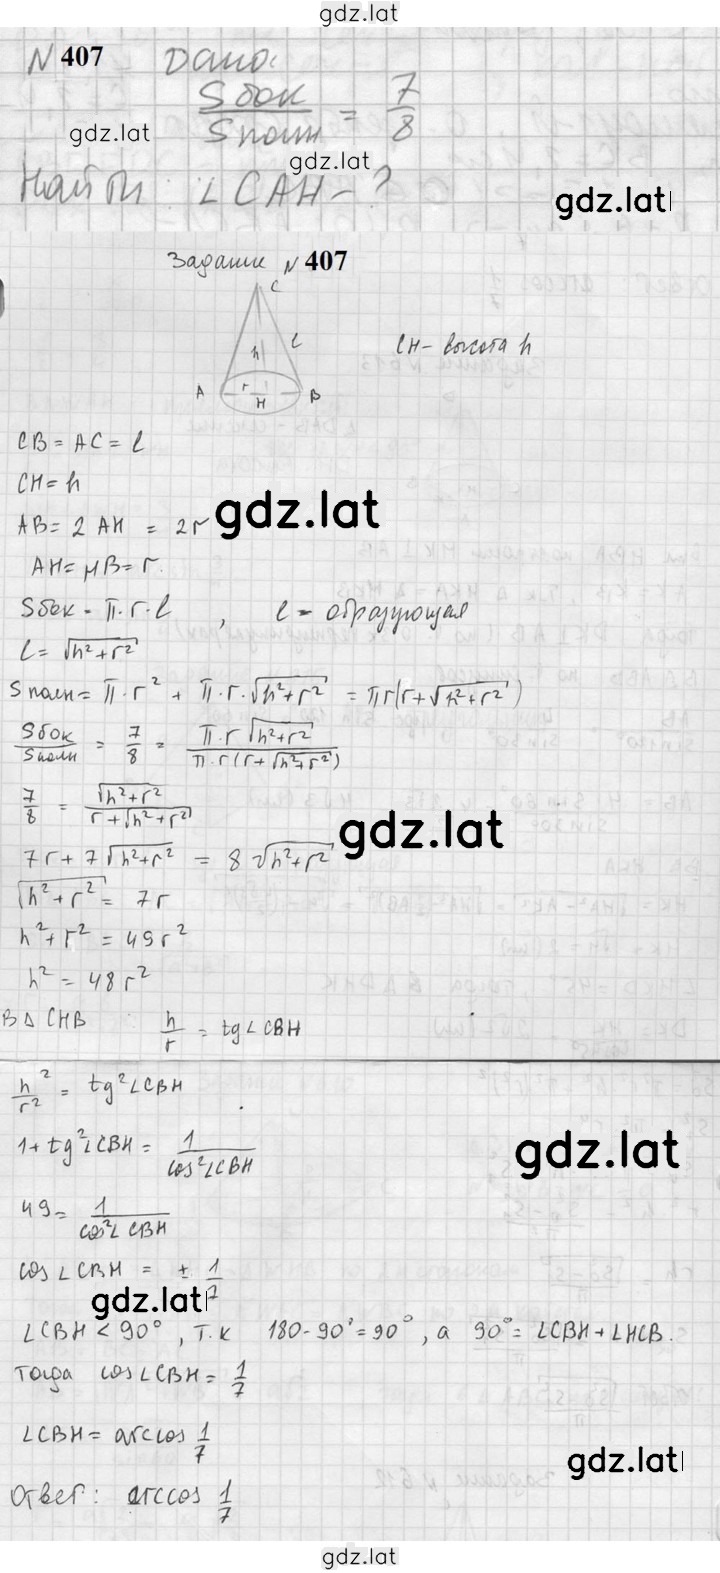 gdz.lat
N 407 Дано:
Sбок/Sполн = 7/8
gdz.lat
gdz.lat
Найти: ∠CAH - ?
gdz.lat
Задание N 407
C
h
l
CH - высота h
A
r
H
B
CB = AC = l
CH = h
gdz.lat
AB = 2 AH = 2r
AH = HB = r.
Sбок = π·r·l , l - образующая
l = √(h²+r²)
Sполн = π·r² + π·r·√(h²+r²) = πr(r+√(h²+r²))
Sбок/Sполн = 7/8 = π·r√(h²+r²)/π·r(r+√(h²+r²))
7/8 = √(h²+r²)/r+√(h²+r²)
gdz.lat
7r + 7√(h²+r²) = 8√(h²+r²)
√(h²+r²) = 7r
h²+r² = 49r²
h² = 48r²
В Δ CHB h/r = tg∠CBH
h²/r² = tg²∠CBH
1+tg²∠CBH = 1/cos²∠CBH
gdz.lat
49 = 1/cos²∠CBH
cos∠CBH = ± 1/7
gdz.lat
∠CBH < 90° , т.к 180-90°=90° , а 90° = ∠CBH+∠HCB.
Тогда cos∠CBH = 1/7
∠CBH = arccos 1/7
gdz.lat
Ответ: arccos 1/7
gdz.lat